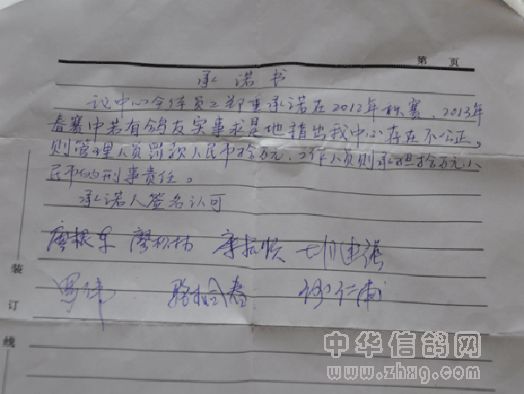 第 页
承诺书
议中心全体员工郑重承诺在2012年秋赛、2013年
春赛中若有鸽友实事求是地指出我中心存在不公正,
则管理人员罚款人民币拾万元,工作人员则承担拾万元人
民币的刑事责任。
承诺人签名认可
廖根生
装
订
线
中华信鸽网
www.zhxg.com